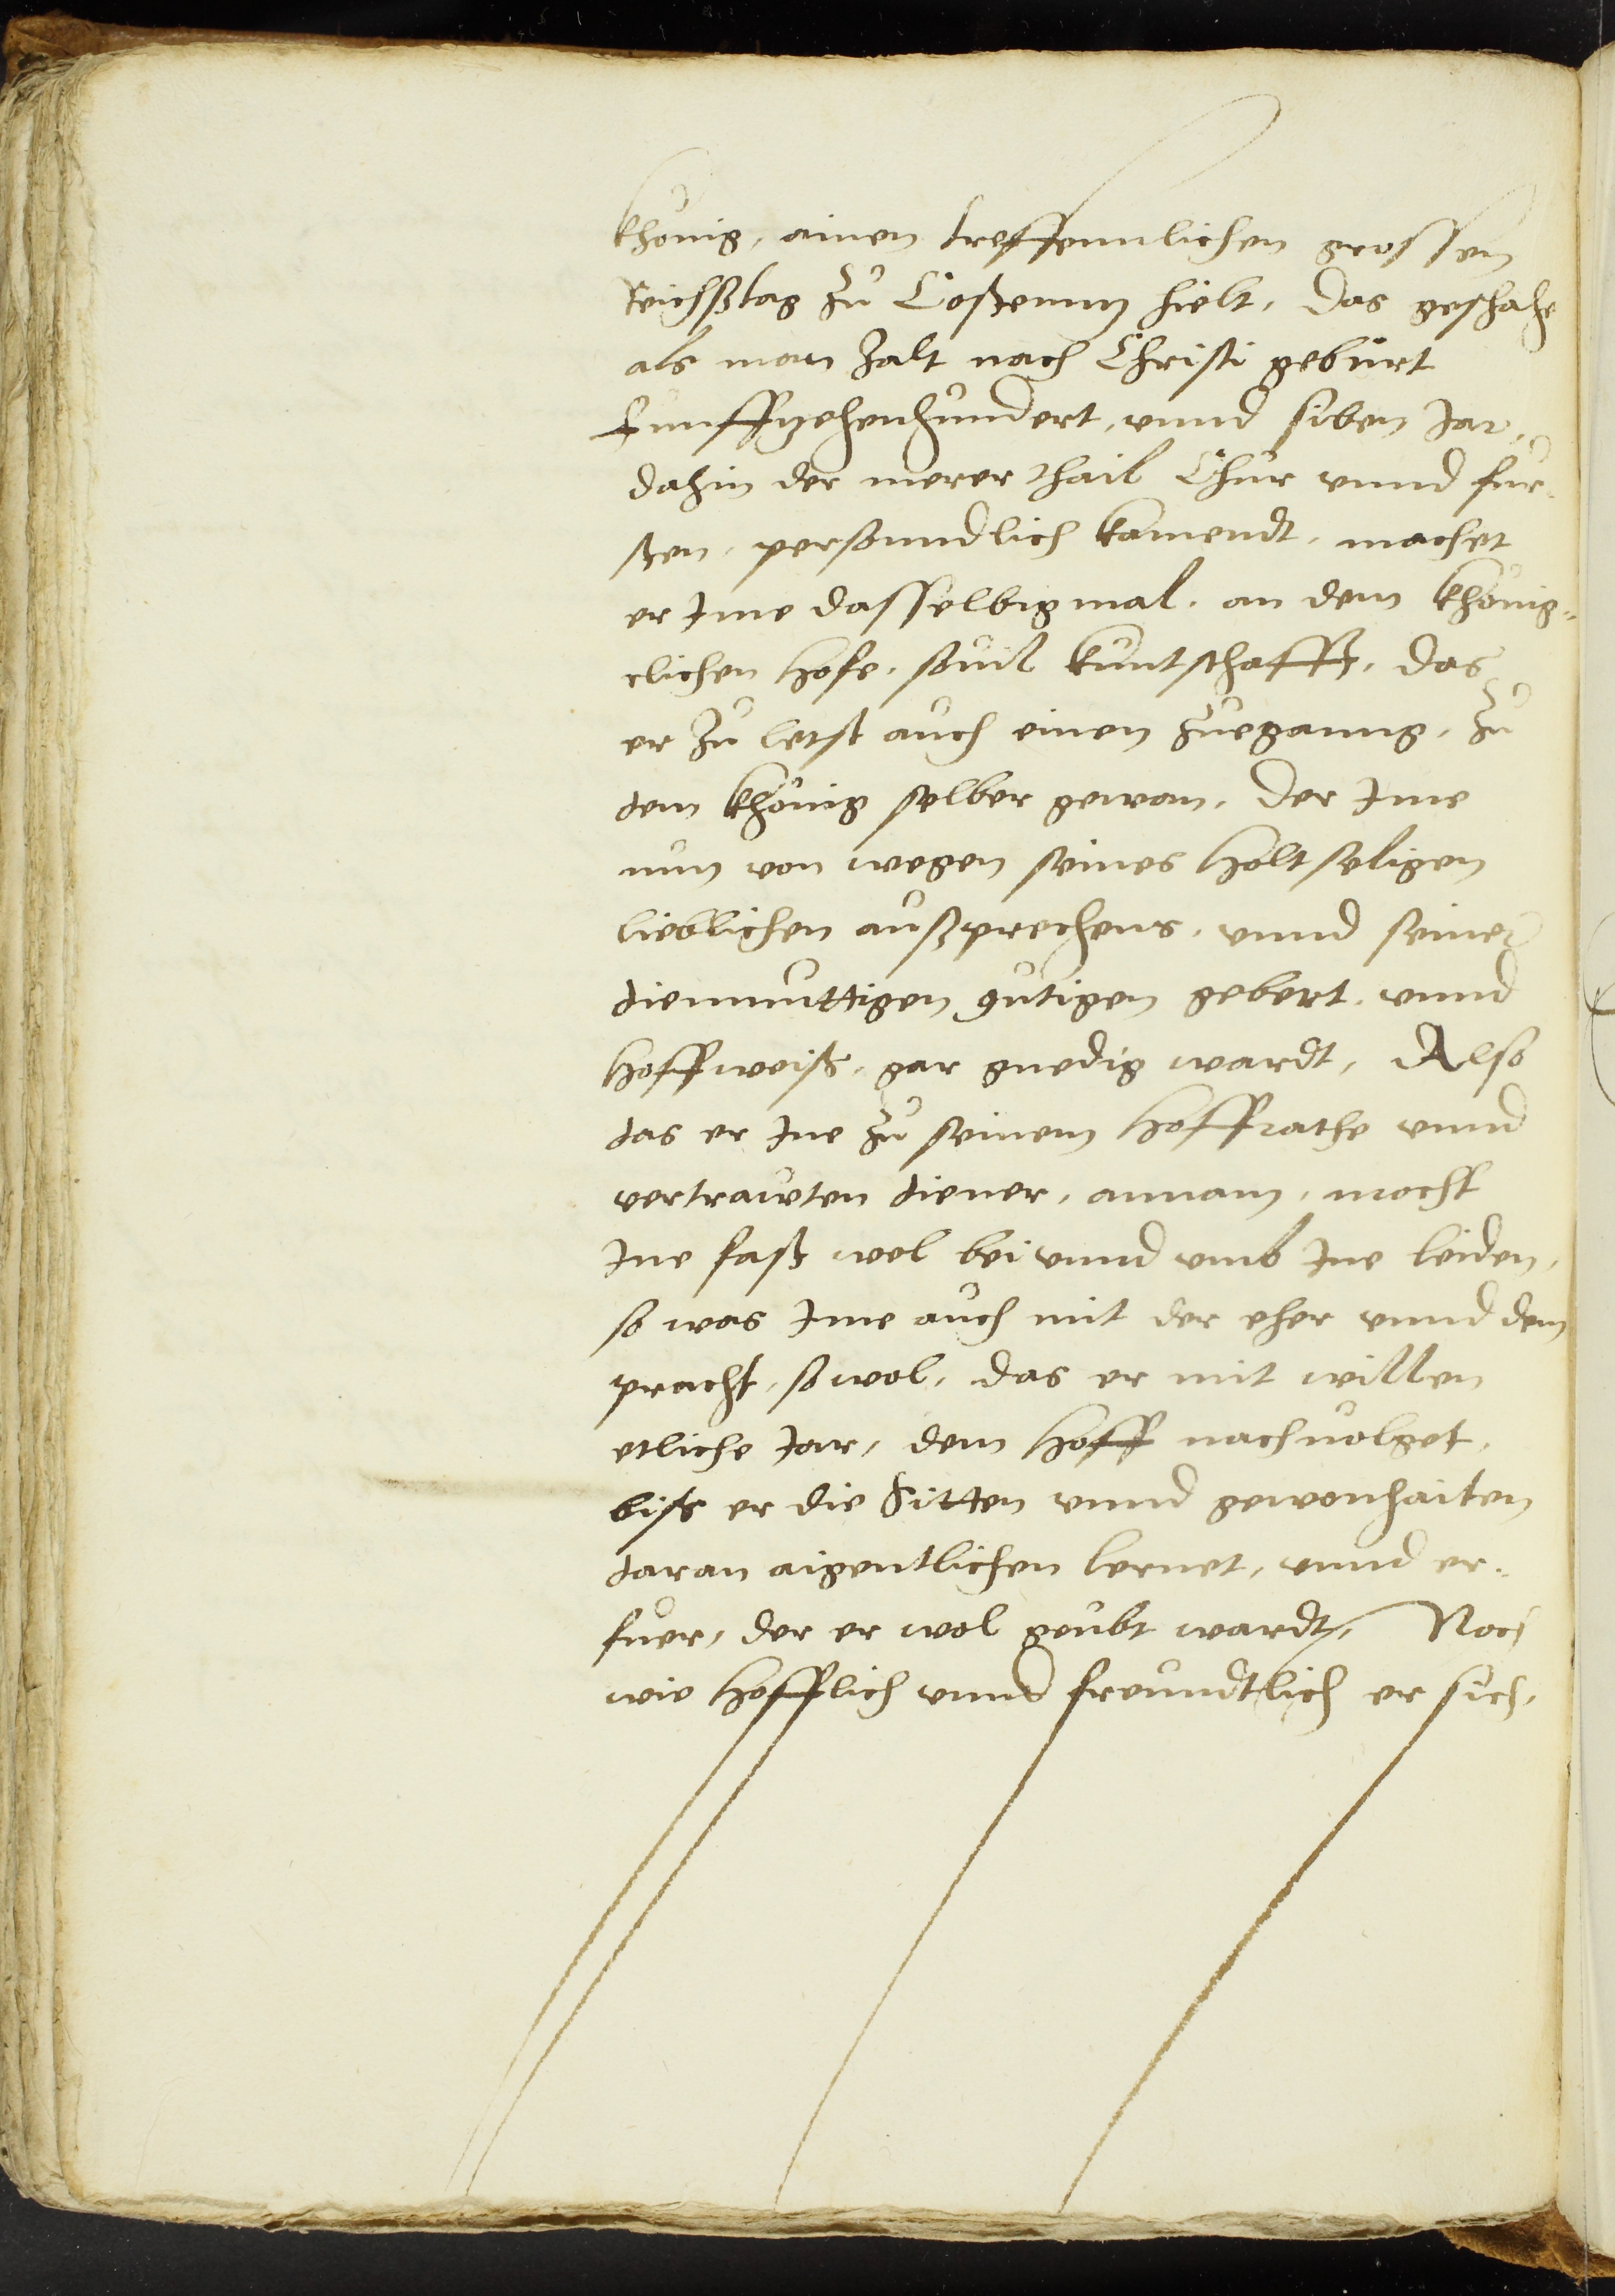 khönig, ainen treffennlichen grossen
Reichßtag zů Costennz hielt, das geschahe
als man zalt nach Christi gebůrt
funffzehenhundert, vnnd siben Jar,
dahin der merer thail Chůr vnnd fur-
sten, personndlich kamendt, machet
er Jme dasselbig mal, an dem khönig-
clichen Hofe, souil kuntschafft, das
er zů letst auch einen zueganng, zů
dem khönig selber gewan, der Jme
nun von wegen seines holtseligen
lieblichen außsprechens, vnnd seiner
diemmuttigen gutigen gebert, vnnd
hoffweiß, gar gnedig wardt, Also
das er Jne zů seinem hoffrathe vnnd
vertrawten diener, annam, mocht
Jne fast wol bei vnnd vmb Jne leiden,
so was Jme auch mit der eher vnnd dem
pracht, so wol, das er mit willen
etliche Jar, dem hoff nachuolget,
biss er die Sitten vnnd gewonhaiten
daran aigentlichen lernet, vnnd er-
fuer, der er wol geubt wardt, Noch
wie hofflich vnnd freundtlich er sich,